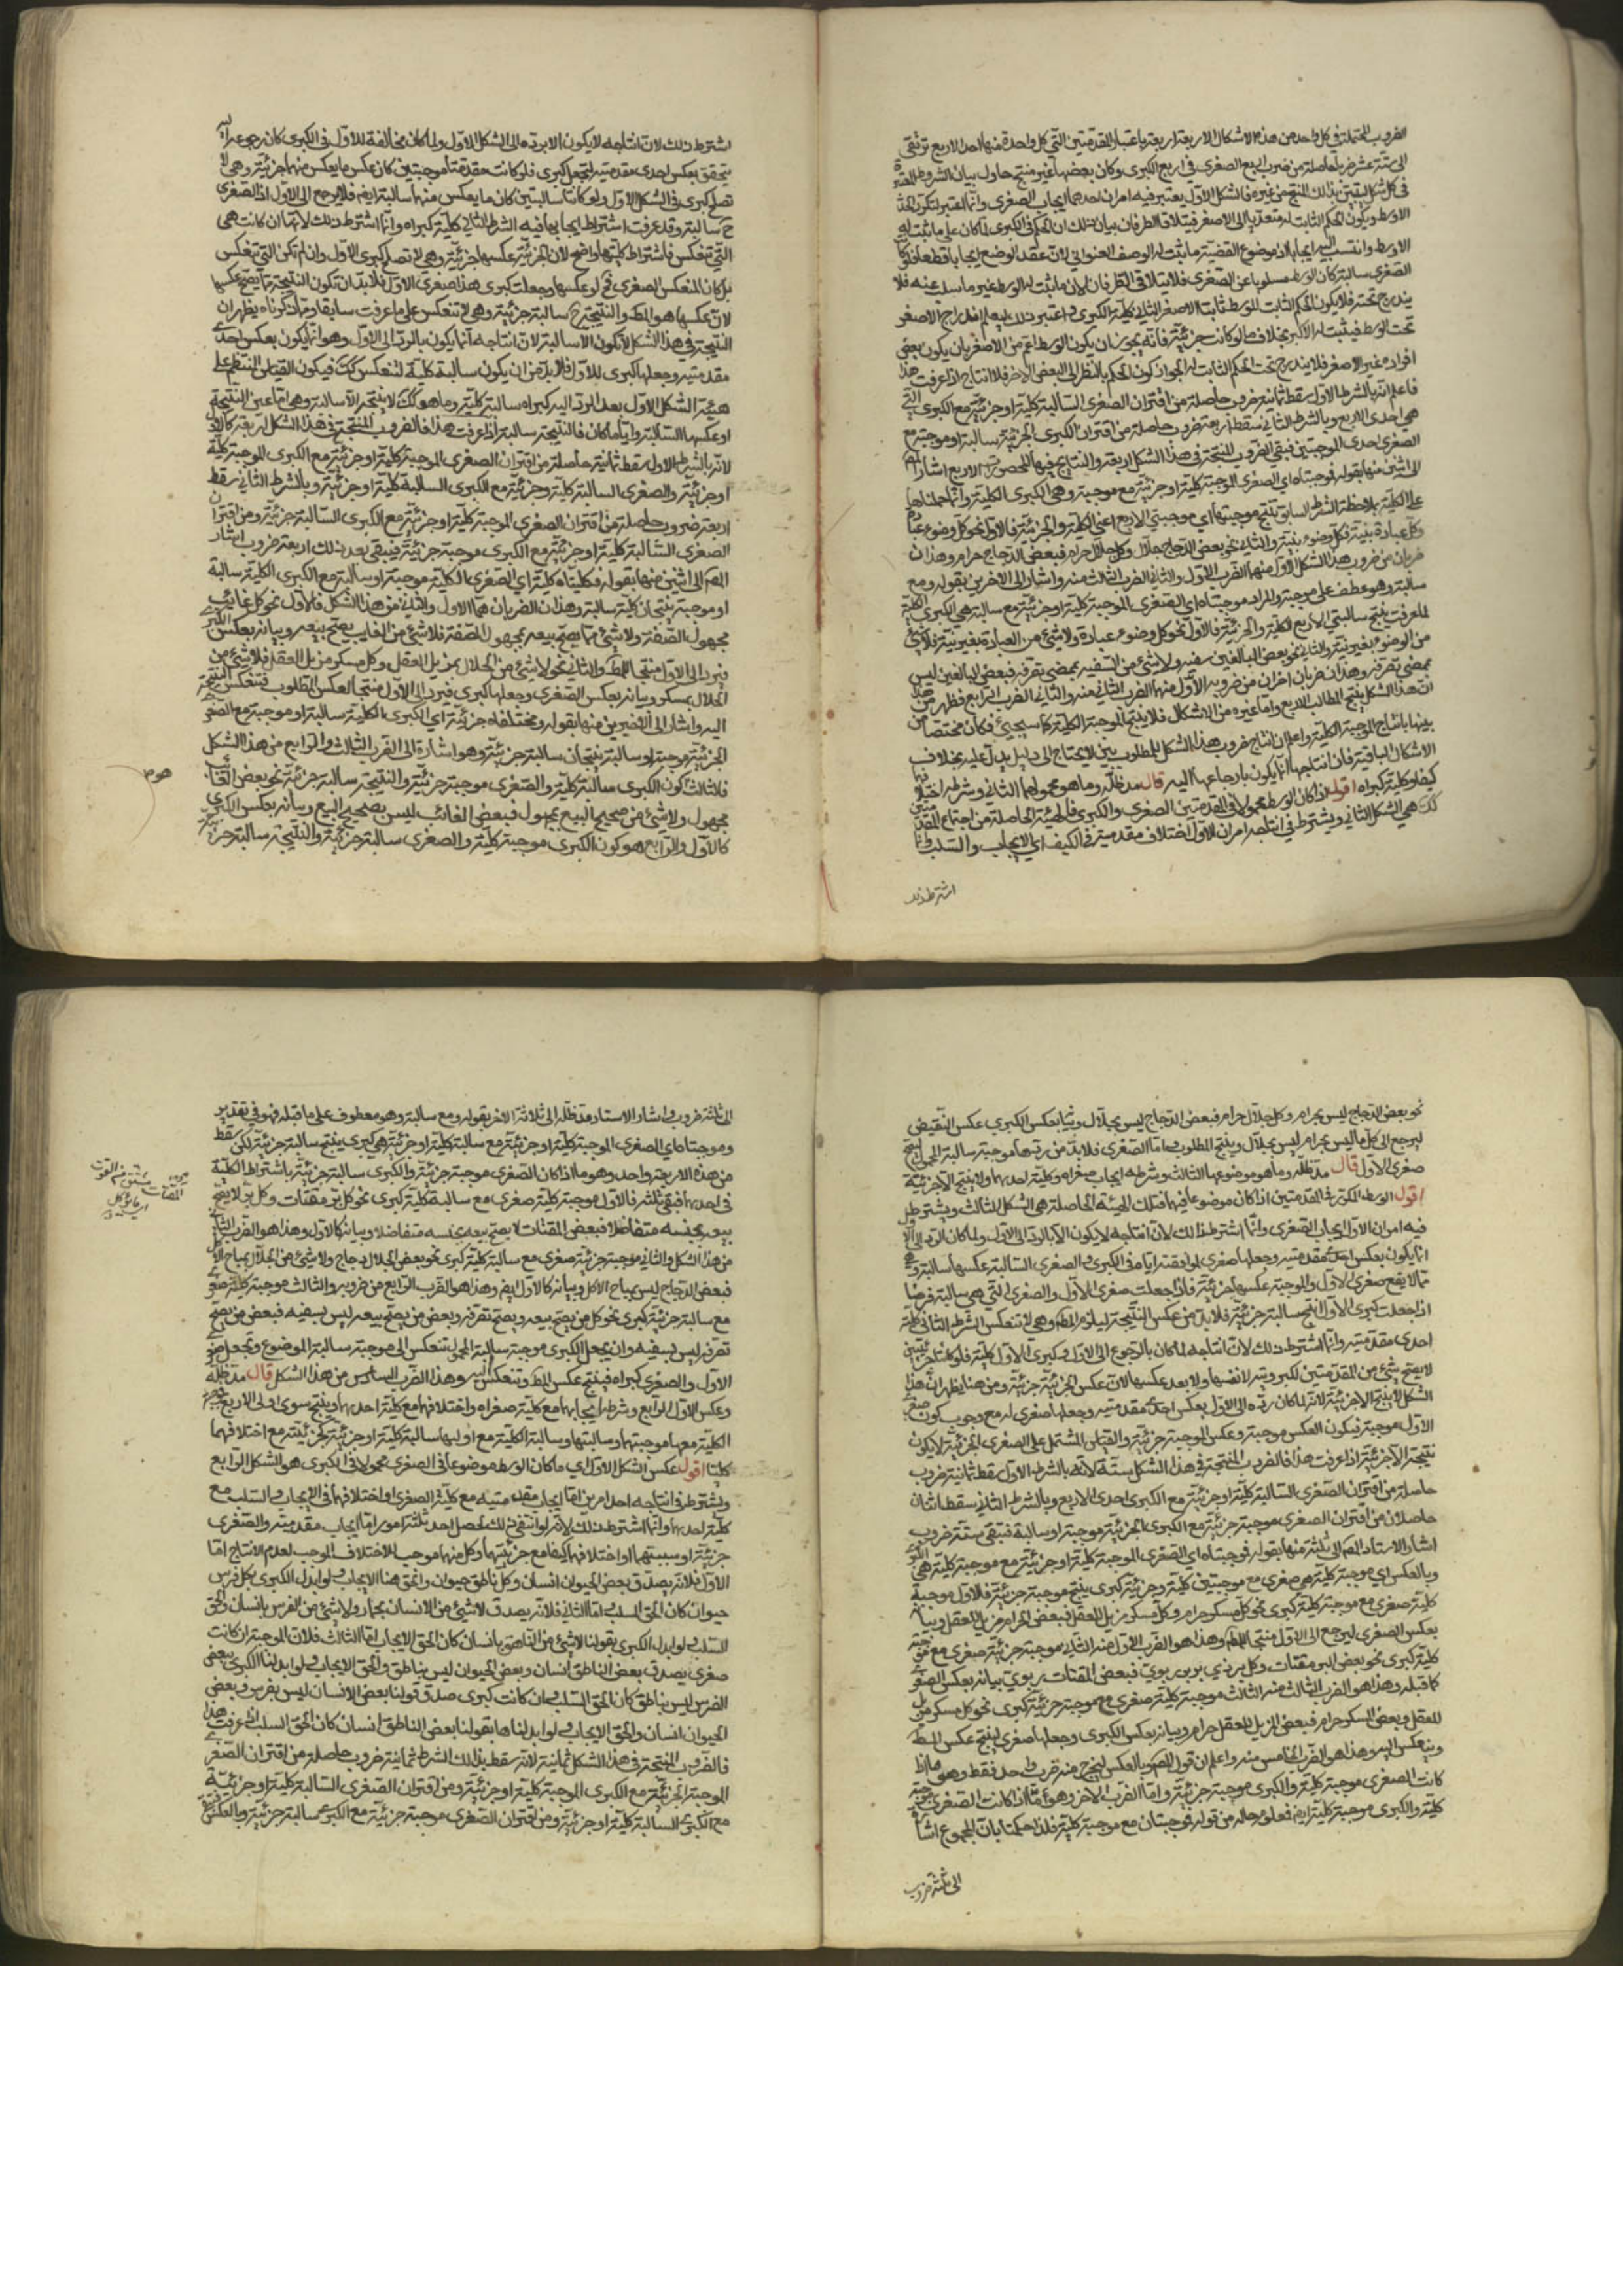 الضروب المحتملة في كل واحد من هذه الاشكال الاربعة اربعة باعتبار المقدمتين التي كل واحدة منها احد الاربع ترتقي
الى ستة عشر ضربا حاصلة من ضرب اربع الصغرى في اربع الكبرى وكان بعضها غير منتج حاول بيان الشروط المعتبرة
في كل شكل ليتبين بذلك المنتج من غيره فالشكل الاول يعتبر فيه امران احدهما ايجاب الصغرى وانما اعتبر لتكرر الحد
الاوسط ويكون الحكم الثابت له متعديا الى الاصغر فيتلاقى الطرفان بيان ذلك ان الحكم في الكبرى لما كان على ما ثبت له
الاوسط وانتسب اليه ايجابا اذ موضوع القضية ما يثبت له الوصف العنواني لان عقد الوضع ايجابا قطعا فلو كان
الصغرى سالبة كان الوسط مسلوبا عن الصغرى فلا يتلاقى الطرفان لان ما يثبت له الوسط غير ما سلب عنه فلا
يندرج تحته فلا يكون الحكم الثابت للوسط ثابتا للاصغر الثاني كلية الكبرى واعتبر ذلك ليعلم اندراج الاصغر
تحت الوسط فيثبت له الاكبر بخلاف ما لو كانت جزئية فانه يجوز ان يكون الوسط اعم من الاصغر بان يكون بعض
افراده غير الاصغر فلا يندرج تحت الحكم الثابت له لجواز كون الحكم بالنظر الى البعض الاخر فلا انتاج اذا عرفت هذا
فاعلم انه بالشرط الاول سقط ثمانية ضروب حاصلة من اقتران الصغرى السالبة كلية او جزئية مع الكبرى التي
هي احدى الاربع وبالشرط الثاني سقط اربعة ضروب حاصلة من اقتران الكبرى الجزئية سالبة او موجبة مع
الصغرى احدى الموجبتين فبقي الضروب المنتجة في هذا الشكل اربعة والنتائج فيها المحصورات الاربع اشار المص
الى اثنين منها بقوله فموجبتاه اي الصغرى الموجبة كلية او جزئية مع موجبة وهي الكبرى الكلية وانما حملناها
على الكلية بملاحظة الشرط السابق تنتج موجبتها اي موجبتي الاربع اعني الكلية والجزئية فالاول نحو كل وضوء عبادة
وكل عبادة بنية فكل وضوء بنية والثاني نحو بعض الدجاج حلال وكل حلال حرام فبعض الدجاج حرام وهذان
ضربان من ضروب هذا الشكل الاول منهما الضرب الاول والثاني الضرب الثالث منه واشار الى الاخرين بقوله ومع
سالبة وهو عطف على موجبة والمراد موجبتاه اي الصغرى الموجبة كلية او جزئية مع سالبة هي الكبرى الكلية
لما عرفت ينتج سالبتي الاربع الكلية والجزئية فالاول نحو كل وضوء عبادة ولا شئ من العبادة بغير نية فلا شئ
من الوضوء بغير نية والثاني نحو بعض البالغين سفيه ولا شئ من السفيه بممضى تصرفه فبعض البالغين ليس
بممضى تصرفه وهذان ضربان اخران من ضروبه الاول منهما الضرب الثاني منه والثاني الضرب الرابع فظهر من هذا
ان هذا الشكل ينتج المطالب الاربع واما غيره من الاشكال فلا ينتج الموجبة الكلية كما سيجئ فكان مختصا من
بينها بانتاج الموجبة الكلية واعلم ان انتاج ضروب هذا الشكل للمطلوب بين لا يحتاج الى دليل يدل عليه بخلاف
الاشكال الباقية فان انتاجها انما يكون بارجاعها اليه قال مد ظله وما هو محمولهما الثاني وشرطه اختلافهما
كيفا وكلية كبراه اقول اذا كان الوسط محمولا في المقدمتين الصغرى والكبرى فالهيئة الحاصلة من اجتماع المقدمتين
كذلك هي الشكل الثاني ويشترط في انتاجه امران الاول اختلاف مقدمتيه في الكيف اي الايجاب والسلب وانما
اشترط ذلك
اشترط ذلك لان انتاجه لا يكون الا برده الى الشكل الاول ولما كان مخالفته للاول في الكبرى كان رجوعه اليه
يتحقق بعكس احدى مقدمتيه لتجعل كبرى فلو كانت مقدمتاه موجبتين كان عكس ما يعكس منهما جزئية وهي لا
تصلح كبرى في الشكل الاول ولو كانتا سالبتين كان ما يعكس منها سالبة ايضا فلا يرجع الى الاول اذ الصغرى
ح سالبة وقد عرفت اشتراط ايجابها فيه الشرط الثاني كلية كبراه وانما اشترط ذلك لانها ان كانت هي
التي تنعكس فاشتراط كليتها واضح لان الجزئية عكسها جزئية وهي لا تصلح كبرى الاول وان لم تكن التي تنعكس
بل كان المنعكس الصغرى ثم لو عكسها وجعلت كبرى هذا صغرى الاول فلا بد ان تكون النتيجة مما يصح عكسها
لان عكسها هو المط والنتيجة ح سالبة جزئية وهي لا تنعكس على ما عرفت سابقا ومما ذكرناه يظهر ان
النتيجة في هذا الشكل لا تكون الا سالبة لان انتاجه انما يكون بالرد الى الاول وهو انما يكون بعكس احدى
مقدمتيه وجعلها كبرى للاول فلا بد من ان يكون سالبة كلية لتنعكس كك فيكون القياس المنتظم على
هيئة الشكل الاول بعد الرد اليه كبراه سالبة كلية وما هو كك لا ينتج الا سالبة وهي اما عين النتيجة
او عكسها السالبة وايا ما كان فالنتيجة سالبة اذا عرفت هذا فالضروب المنتجة في هذا الشكل اربعة كالاول
لانه بالشرط الاول سقط ثمانية حاصلة من اقتران الصغرى الموجبة كلية او جزئية مع الكبرى الموجبة كلية
او جزئية والصغرى السالبة كلية وجزئية مع الكبرى السالبة كلية او جزئية وبالشرط الثاني سقط
اربعة ضروب حاصلة من اقتران الصغرى الموجبة كلية او جزئية مع الكبرى السالبة جزئية ومن اقتران
الصغرى السالبة كلية او جزئية مع الكبرى موجبة جزئية فبقي بعد ذلك اربعة ضروب اشار
المص الى اثنين منها بقوله فكليتاه كلية اي الصغرى الكلية موجبة او سالبة مع الكبرى الكلية سالبة
او موجبة ينتجان كلية سالبة وهذان الضربان هما الاول والثاني من هذا الشكل فالاول نحو كل غائب
مجهول الصفة ولا شئ مما يصح بيعه بمجهول الصفة فلا شئ من الغائب يصح بيعه وبيانه بعكس الكبرى
فيرد الى الاول منتجا للمط والثاني نحو لا شئ من الحلال بمزيل العقل وكل مسكر مزيل العقل فلا شئ من
الحلال بمسكر وبيانه بعكس الصغرى وجعلها كبرى فيرد الى الاول منتجا لعكس المطلوب فتنعكس النتيجة
اليه واشار الى الاخيرين منها بقوله ومختلفتاه جزئية اي الكبرى الكلية سالبة او موجبة مع الصغرى
الجزئية موجبة او سالبة ينتجان سالبة جزئية وهو اشارة الى الضرب الثالث والرابع من هذا الشكل
فالثالث كون الكبرى سالبة كلية والصغرى موجبة جزئية والنتيجة سالبة جزئية نحو بعض الغائب
مجهول ولا شئ من صحيح البيع بمجهول فبعض الغائب ليس بصحيح البيع وبيانه بعكس الكبرى
كالاول والرابع هو كون الكبرى موجبة كلية والصغرى سالبة جزئية والنتيجة سالبة جزئية
نحو بعض الدجاج ليس بحرام وكل حلال حرام فبعض الدجاج ليس بحلال وبيانه بعكس الكبرى عكس النقيض
ليرجع الى كل ما ليس بحرام ليس بحلال وينتج المطلوب واما الصغرى فلا بد من ردها موجبة سالبة المحمول لتصح
صغرى الاول قال مد ظله وما هو موضوعهما الثالث وشرطه ايجاب صغراه وكلية احدهما ولا ينتج الا جزئية
اقول الوسط المكرر في المقدمتين اذا كان موضوعا فيهما فتلك الهيئة الحاصلة هي الشكل الثالث ويشترط
فيه امران الاول ايجاب الصغرى وانما اشترط ذلك لان انتاجه لا يكون الا بالرد الى الاول ولما كان الرد الى الاول
انما يكون بعكس احدى مقدمتيه وجعلها صغرى لموافقته اياه في الكبرى والصغرى السالبة عكسها سالبة وهي
مما لا يقع صغرى الاول والموجبة عكسها جزئية فاذا جعلت صغرى الاول والصغرى التي هي سالبة فرضا
اذا جعلت كبرى الاول انتج سالبة جزئية فلا بد من عكس النتيجة ليلزم المط وهي لا تنعكس الشرط الثاني كلية
احدى مقدمتيه وانما اشترط ذلك لان انتاجه لما كان بالرجوع الى الاول وكبرى الاول كلية فلو كانتا جزئيتين
لا يصح شئ من المقدمتين لكبرويته لا نفسها ولا بعد عكسها لان عكس الجزئية جزئية ومن هنا يظهر ان هذا
الشكل لا ينتج الا جزئية لانه لما كان رده الى الاول بعكس احدى مقدمتيه وجعلها صغرى له مع وجوب كون صغرى
الاول موجبة فيكون العكس موجبة وعكس الموجبة جزئية والقياس المشتمل على الصغرى الجزئية لا يكون
نتيجته الا جزئية اذا عرفت هذا فالضروب المنتجة في هذا الشكل ستة لانه بالشرط الاول سقط ثمانية ضروب
حاصلة من اقتران الصغرى السالبة كلية او جزئية مع الكبرى احدى الاربع وبالشرط الثاني سقط اثنان
حاصلان من اقتران الصغرى موجبة جزئية مع الكبرى الجزئية موجبة او سالبة فبقي ستة ضروب
اشار الاستاد المص الى ثلثة منها بقوله فموجبتاه اي الصغرى الموجبة كلية او جزئية مع موجبة كلية هي الكبرى
وبالعكس اي موجبة كلية هي صغرى مع موجبتين كلية وجزئية كبرى ينتج موجبة جزئية فالاول موجبة
كلية صغرى مع موجبة كلية كبرى نحو كل مسكر حرام وكل مسكر مزيل للعقل فبعض الحرام مزيل للعقل وبيانه
بعكس الصغرى ليرجع الى الاول منتجا للمط وهذا هو الضرب الاول منه الثاني موجبة جزئية صغرى مع موجبة
كلية كبرى نحو بعض البر مقتات وكل بر ربوي فبعض المقتات ربوي بيانه بعكس الصغرى
كما قبله وهذا هو الضرب الثالث منه الثالث موجبة كلية صغرى مع موجبة جزئية كبرى نحو كل مسكر مزيل
للعقل وبعض المسكر حرام فبعض المزيل للعقل حرام وبيانه بعكس الكبرى وجعلها صغرى لينتج عكس المط
وينعكس اليه وهذا هو الضرب الخامس منه واعلم ان قول المص وبالعكس ليخرج منه ضرب واحد فقط وهو ما اذا
كانت الصغرى موجبة كلية والكبرى موجبة جزئية واما الضرب الاخر وهو ما اذا كانت الصغرى موجبة
كلية والكبرى موجبة كلية ايضا فعلم حاله من قوله فموجبتان مع موجبة كلية فلذا حكمنا بان المجموع اشارة
الى ثلثة ضروب
الى ثلثة ضروب واشار الاستاد مد ظله الى ثلاثة الاخر بقوله ومع سالبة وهو معطوف على ما قبله فهو في تقدير
وموجبتاه اي الصغرى الموجبة كلية او جزئية مع سالبة كلية او جزئية هي كبرى ينتج سالبة جزئية لكن سقط
من هذه الاربعة واحد وهو ما اذا كان الصغرى موجبة جزئية والكبرى سالبة جزئية باشتراط الكلية
في احدهما فبقي ثلثة فالاول موجبة كلية صغرى مع سالبة كلية كبرى نحو كل بر مقتات وكل بر لا يصح
بيعه بجنسه متفاضلا فبعض المقتات لا يصح بيعه بجنسه متفاضلا وبيانه كالاول وهذا هو الضرب الثاني
من هذا الشكل والثاني موجبة جزئية صغرى مع سالبة كلية كبرى نحو بعض الحلال دجاج ولا شئ من الحلال بمباح الاكل
فبعض الدجاج ليس بمباح الاكل وبيانه كالاول ايضا وهذا هو الضرب الرابع من ضروبه والثالث موجبة كلية صغرى
مع سالبة جزئية كبرى نحو كل من يصح بيعه ويصح تصرفه وبعض من يصح بيعه ليس بسفيه فبعض من يصح
تصرفه ليس بسفيه وان يجعل الكبرى موجبة سالبة المحمول تنعكس الى موجبة سالبة الموضوع وتجعل صغرى
الاول والصغرى كبراه فينتج عكس المط وتنعكس اليه وهذا الضرب السادس من هذا الشكل قال مد ظله
وعكس الاول الرابع وشرطه ايجابهما مع كلية صغراه واختلافهما مع كلية احدهما وينتج سوى اولى الاربع
الكلية معها موجبتها وسالبتها وسالبة الكلية مع اوليها سالبة كلية او جزئية كجزئيته مع اختلافهما
كليتا اقول عكس الشكل الاول اي ما كان الوسط موضوعا في الصغرى محمولا في الكبرى هو الشكل الرابع
ويشترط في انتاجه احد امرين اما ايجاب مقدمتيه مع كلية الصغرى او اختلافهما في الايجاب والسلب مع
كلية احدهما وانما اشترط ذلك لانه لو انتفى ذلك لحصل احد ثلثة امور اما ايجاب مقدمتيه والصغرى
جزئية او سلبهما او اختلافهما كيفا مع جزئيتهما وكل منها موجب للاختلاف الموجب لعدم الانتاج اما
الاول فلانه يصدق بعض الحيوان انسان وكل ناطق حيوان والحق هنا الايجاب ولو ابدل الكبرى بكل فرس
حيوان كان الحق السلب واما الثاني فلانه يصدق لا شئ من الانسان بحمار ولا شئ من الفرس بانسان والحق
السلب ولو ابدل الكبرى بقولنا لا شئ من الناهق بانسان كان الحق الايجاب اما الثالث فلان الموجبة ان كانت
صغرى يصدق بعض الناطق انسان وبعض الحيوان ليس بناطق والحق الايجاب ولو ابدلنا الكبرى ببعض
الفرس ليس بناطق كان الحق السلب وان كانت كبرى صدق قولنا بعض الانسان ليس بفرس وبعض
الحيوان انسان والحق الايجاب ولو ابدلناها بقولنا بعض الناطق انسان كان الحق السلب اذا عرفت هذا
فالضروب المنتجة في هذا الشكل ثمانية لانه سقط بذلك الشرط ثمانية ضروب حاصلة من اقتران الصغرى
الموجبة الجزئية مع الكبرى الموجبة كلية او جزئية ومن اقتران الصغرى السالبة كلية او جزئية
مع الكبرى السالبة كلية او جزئية ومن اقتران الصغرى موجبة جزئية مع الكبرى سالبة جزئية وبالعكس